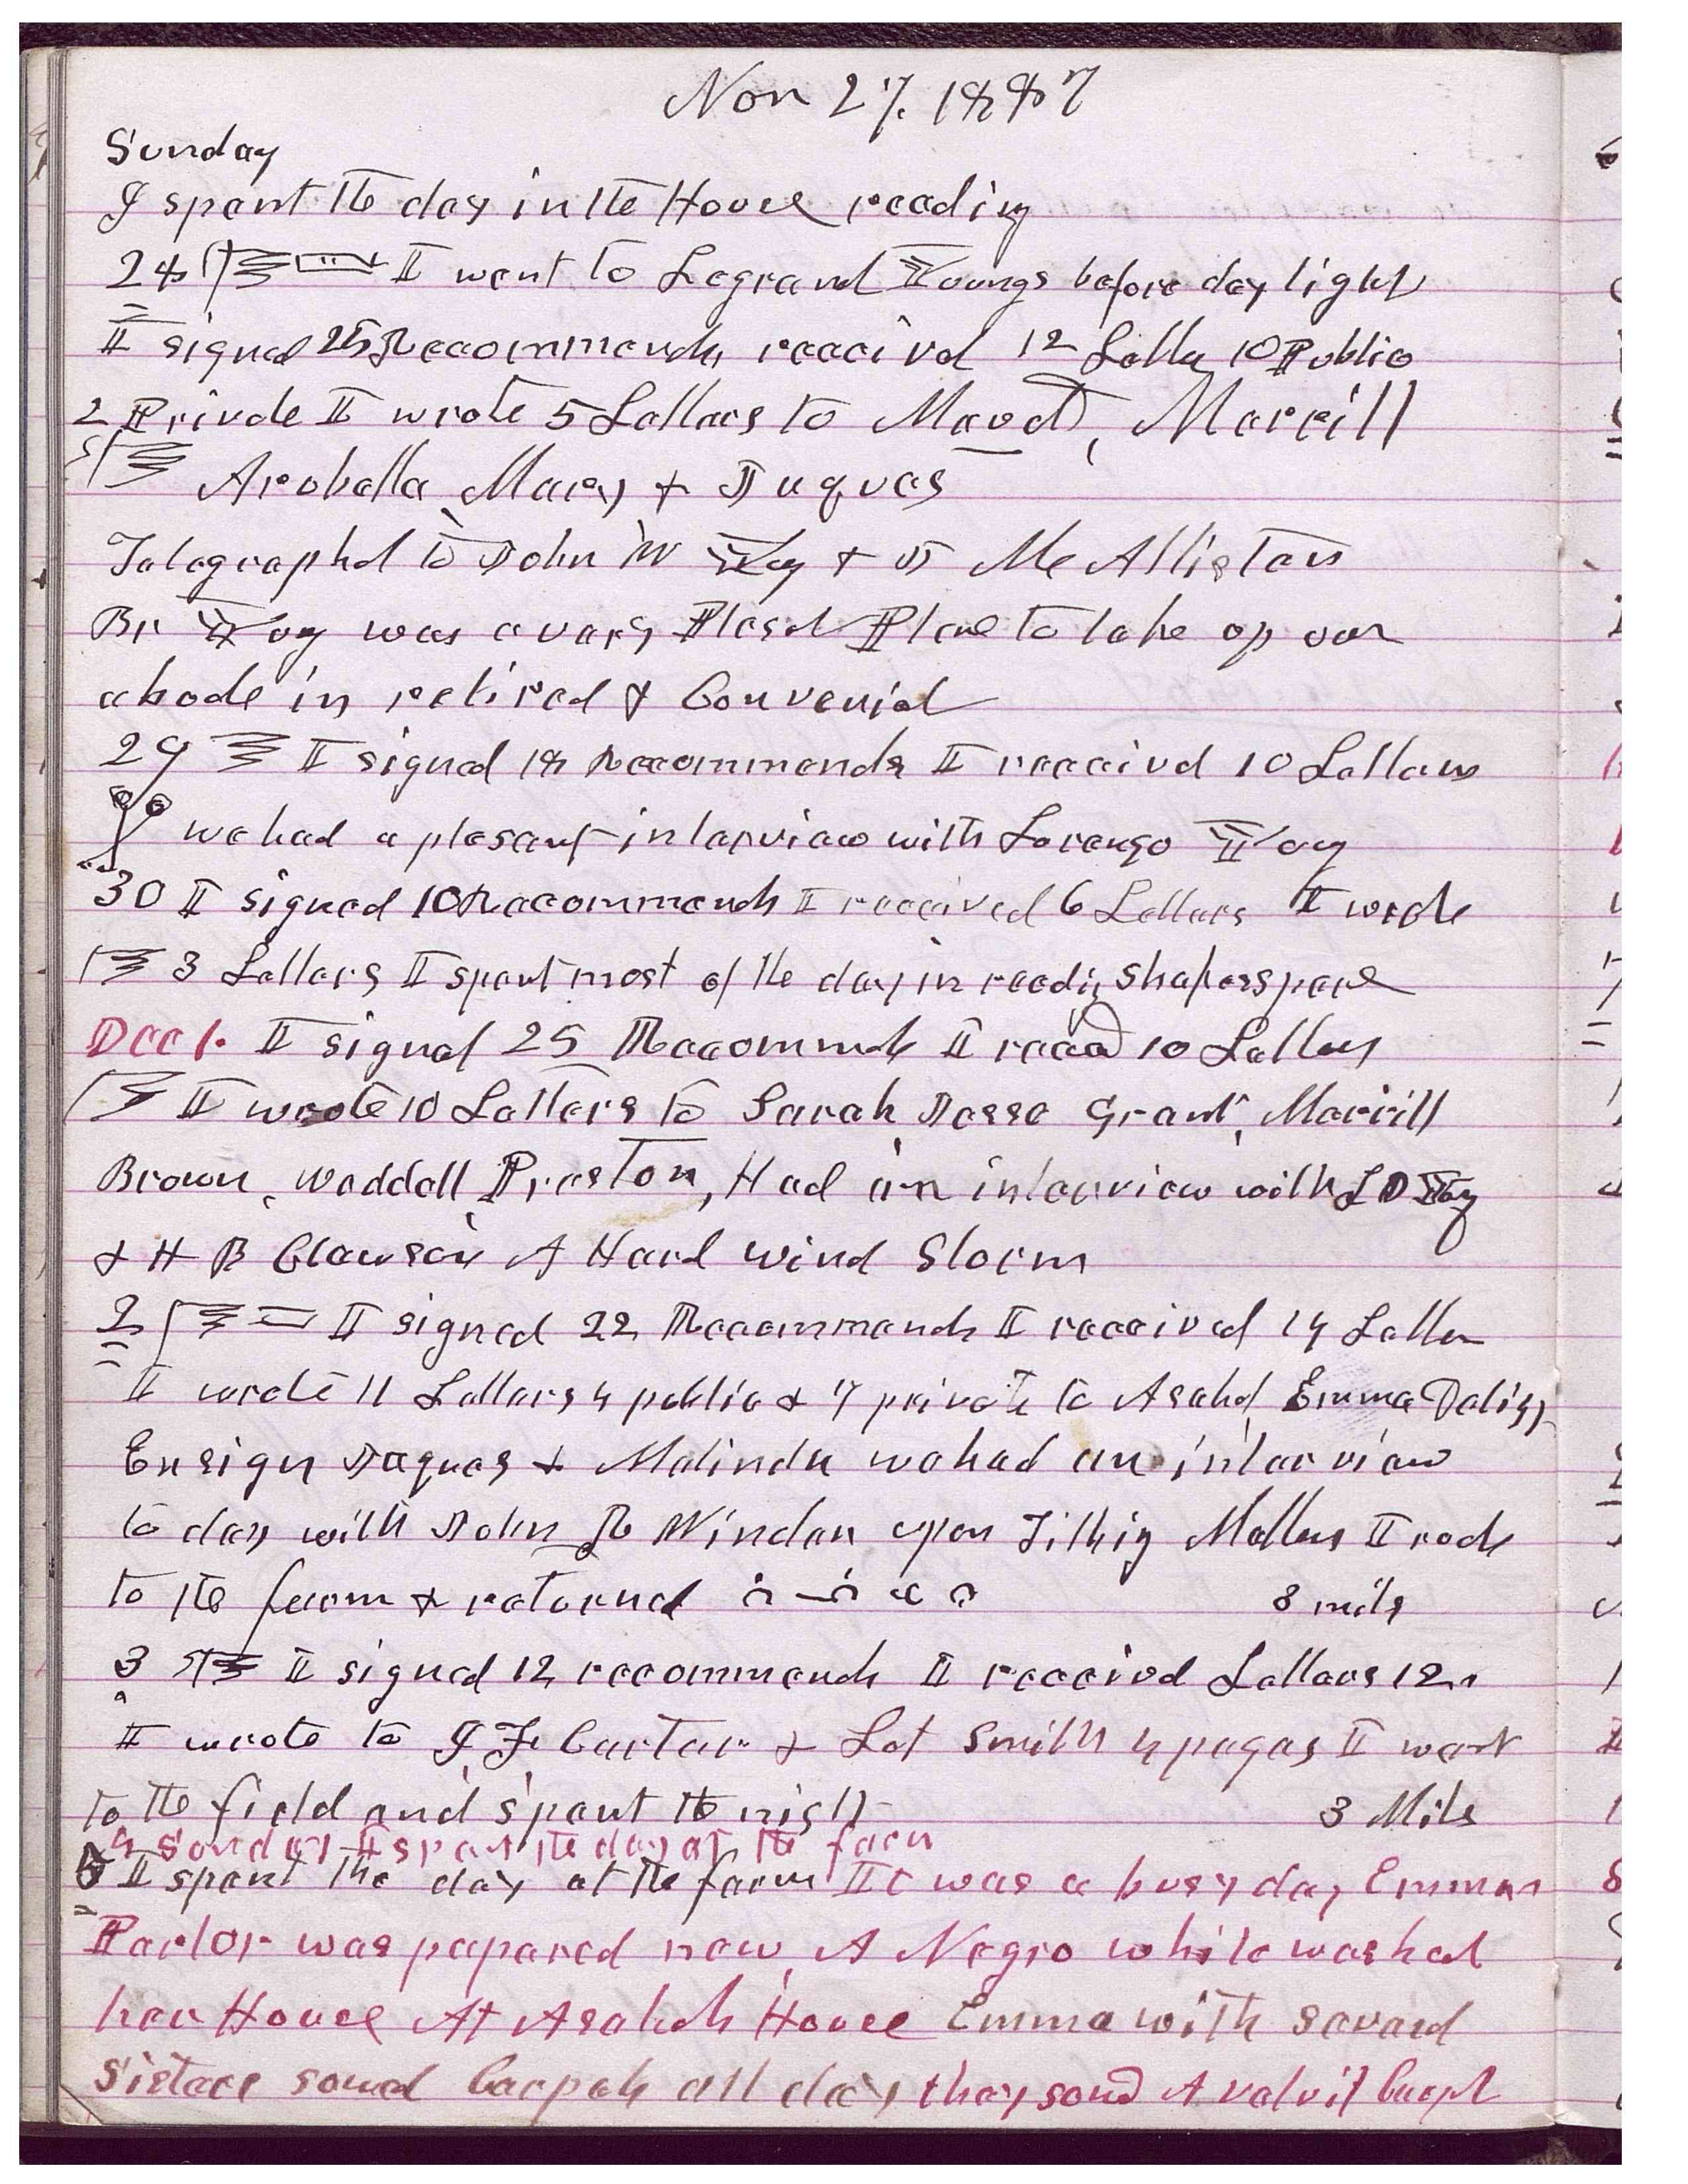 Nov 27. 1887
Sunday
I spent the day in the House reading
28 I went to Legrand Youngs before day light
I signed 25 Recommends received 12 Letters 10 Public
2 Private I wrote 5 Letters to Maud, Merrill
Arobella Mary & Jaques
Telegraphd to John W Young & J McAllister
Br Young was a vary Plesant Place to take up our
abode in retired & Convenient
29 I signed 18 Recommends I received 10 Letters
we had a plesant interview with Lorenzo Young
30 I signed 10 Recommends I received 6 Letters I wrote
3 Letters I spent most of the day in reading Shakerspeare
Dec 1. I signed 25 Recommends I recd 10 Letters
I wrote 10 Letters to Sarah Jesse Grant, Merrill
Brown, Weddell Preston, Had an interview with L D Young
& H B Clawson A Hard wind Storm
2 I signed 22 Recommends I received 14 Letters
I wrote 11 Letters 4 public & 7 private to Asahel Emma Delight
Ensign Jaques & Malinda we had an interview
to day with John R Winder upon Tithing Matters I rode
to the farm & returned 8 mils
3 I signed 12 recommends I received Letters 12.
I wrote to I F Carter & Lot Smith 4 pages I went
to the field and spent the night 3 Mils
4 Sunday I spent the day at the farm
5 I spent the day at the farm It was a busy day Emmas
Parlor was papared new, A Negro white washed
her House At Asahels House Emma with several
Sisters sowed Carpets all day they sowd A velvit Carpet